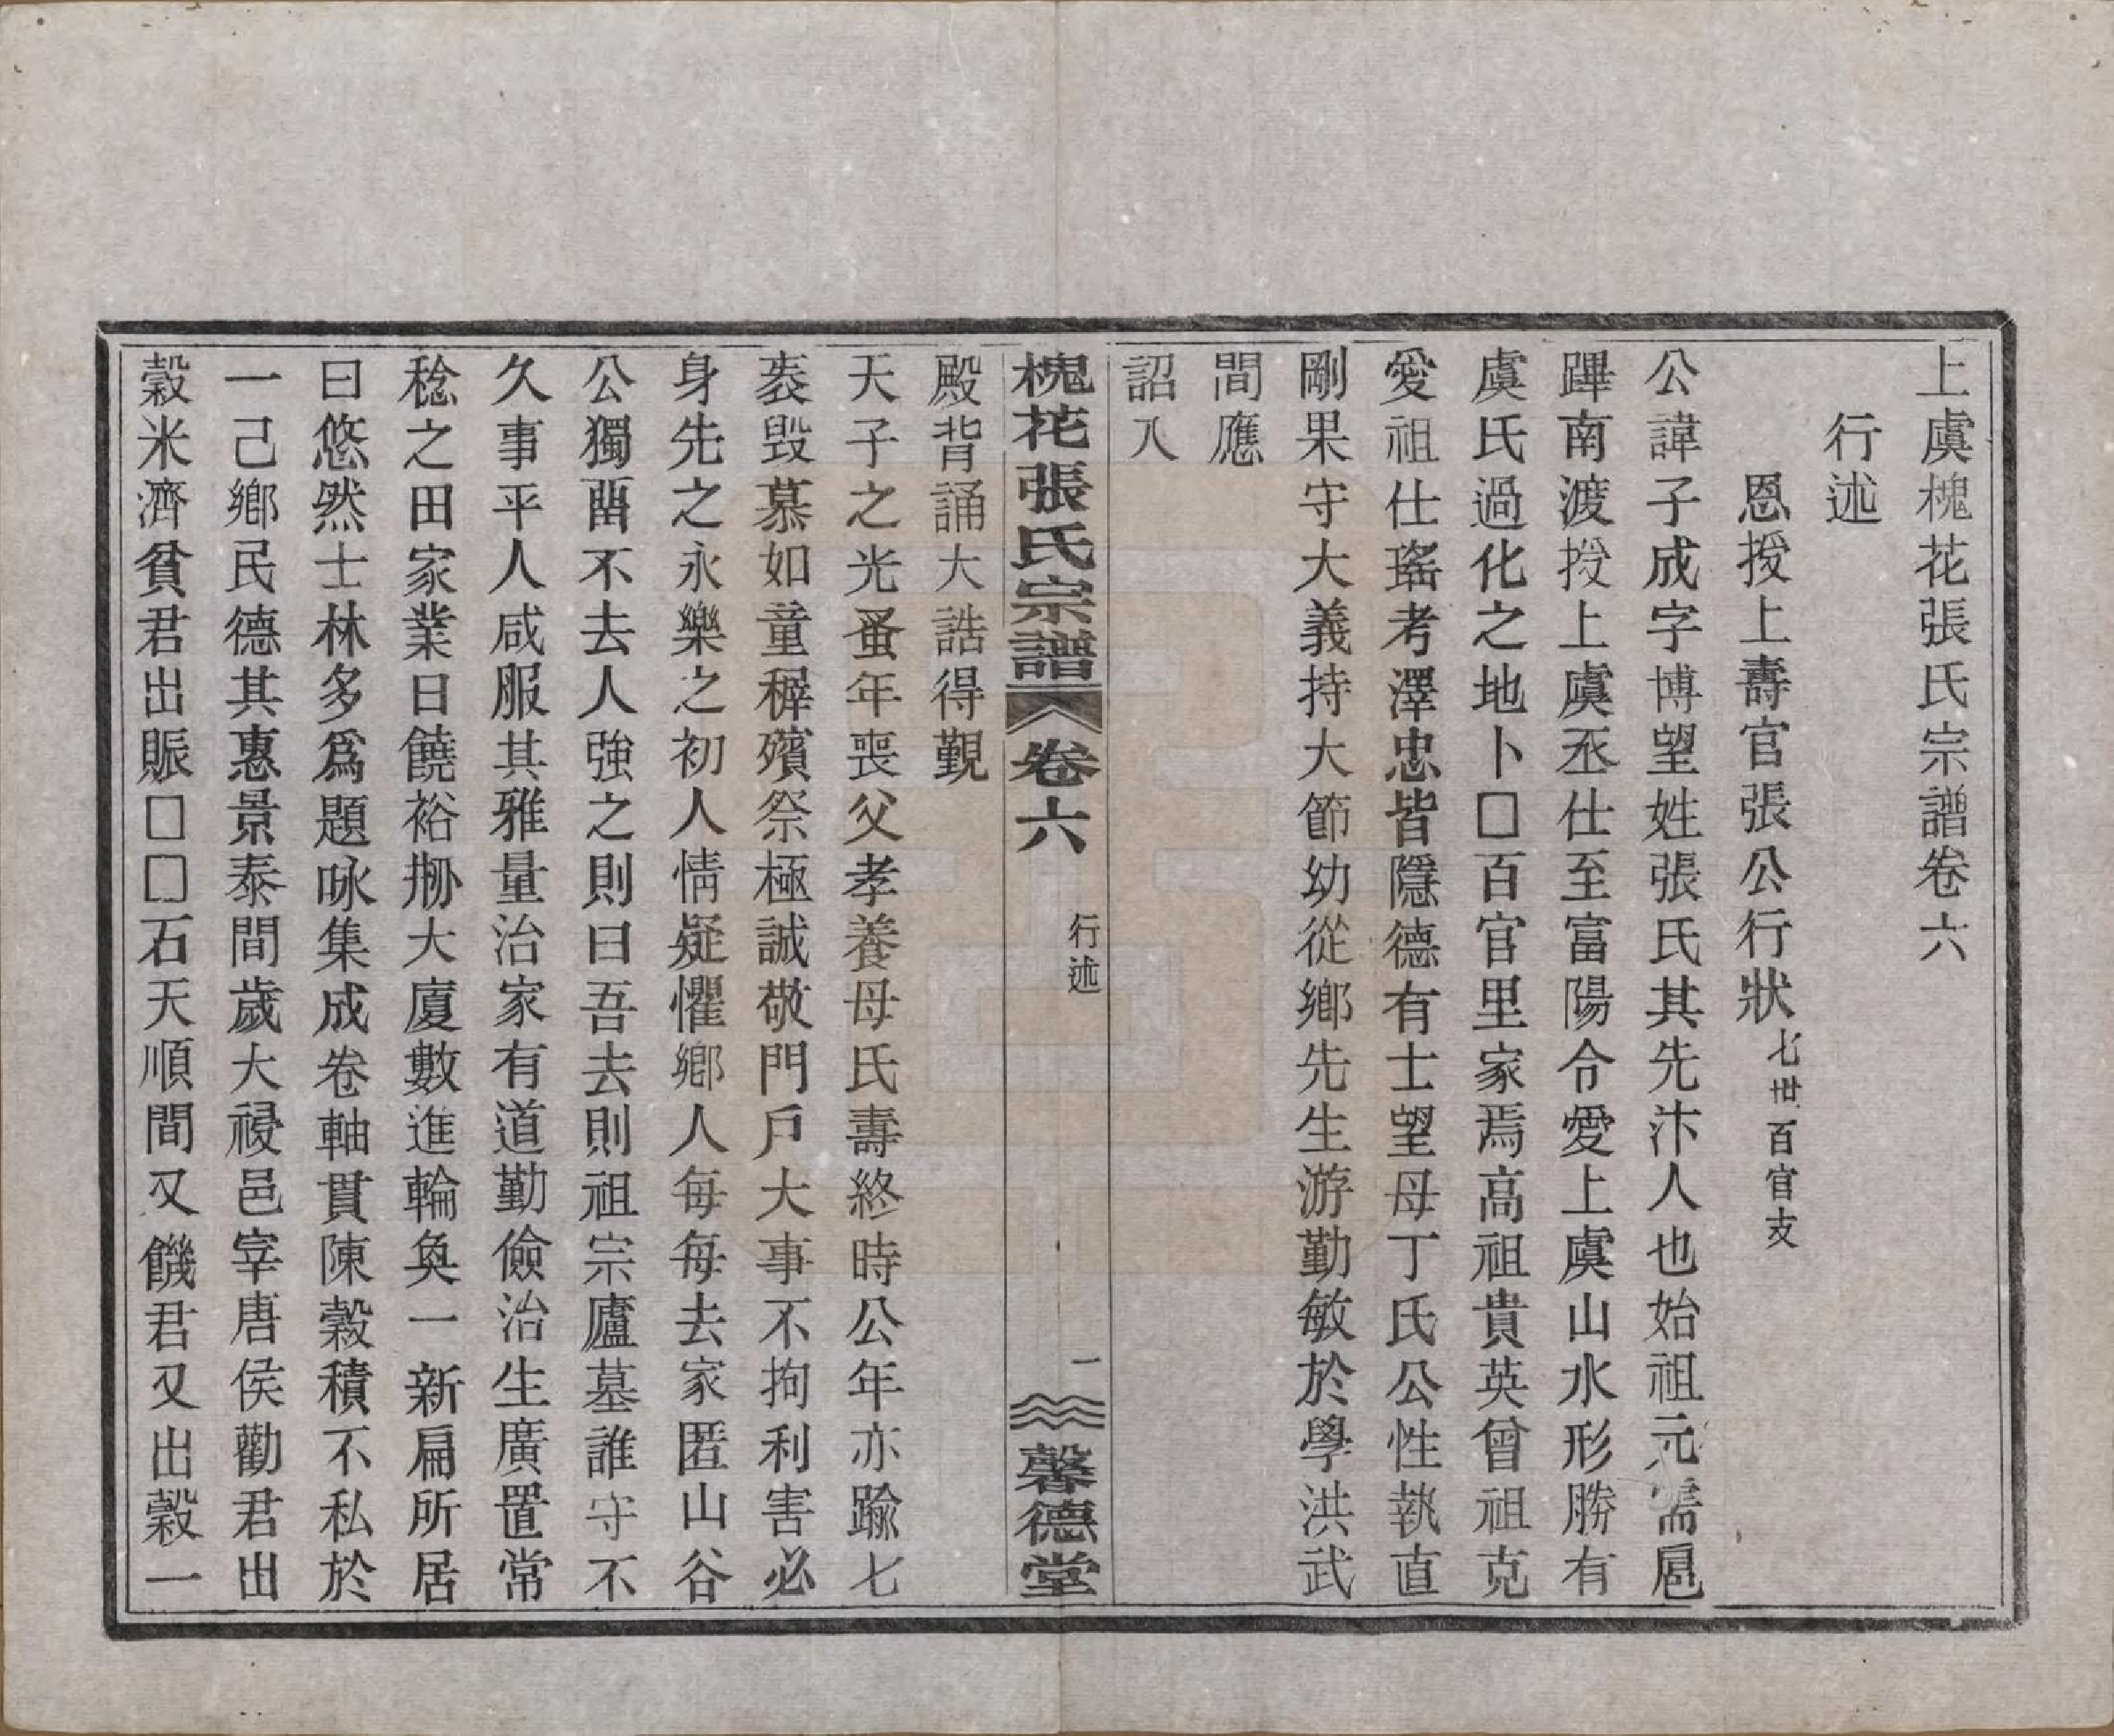 上虞槐花張氏宗譜卷六
行述
恩授上壽官張公行狀七世百官支
公諱子成字博望姓張氏其先汴人也始祖元霈扈
蹕南渡授上虞丞仕至富陽令愛上虞山水形勝有
虞氏過化之地卜□百官里家焉高祖貴英曾祖克
愛祖仕瑤考澤忠皆隱德有士望母丁氏公性執直
剛果守大義持大節幼從鄉先生游勤敏於學洪武
間應
詔入
槐花張氏宗譜 卷六 行述 一 馨德堂
殿背誦大誥得覲
天子之光蚤年喪父孝養母氏壽終時公年亦踰七
袠毀慕如童穉殯祭極誠敬門戶大事不拘利害必
身先之永樂之初人情疑懼鄉人每每去家匿山谷
公獨畱不去人強之則曰吾去則祖宗廬墓誰守不
久事平人咸服其雅量治家有道勤儉治生廣置常
稔之田家業日饒裕刱大廈數進輪奐一新扁所居
曰悠然士林多爲題咏集成卷軸貫陳穀積不私於
一己鄉民德其惠景泰間歲大祲邑宰唐侯勸君出
穀米濟貧君出賑□□石天順間又饑君又出穀一